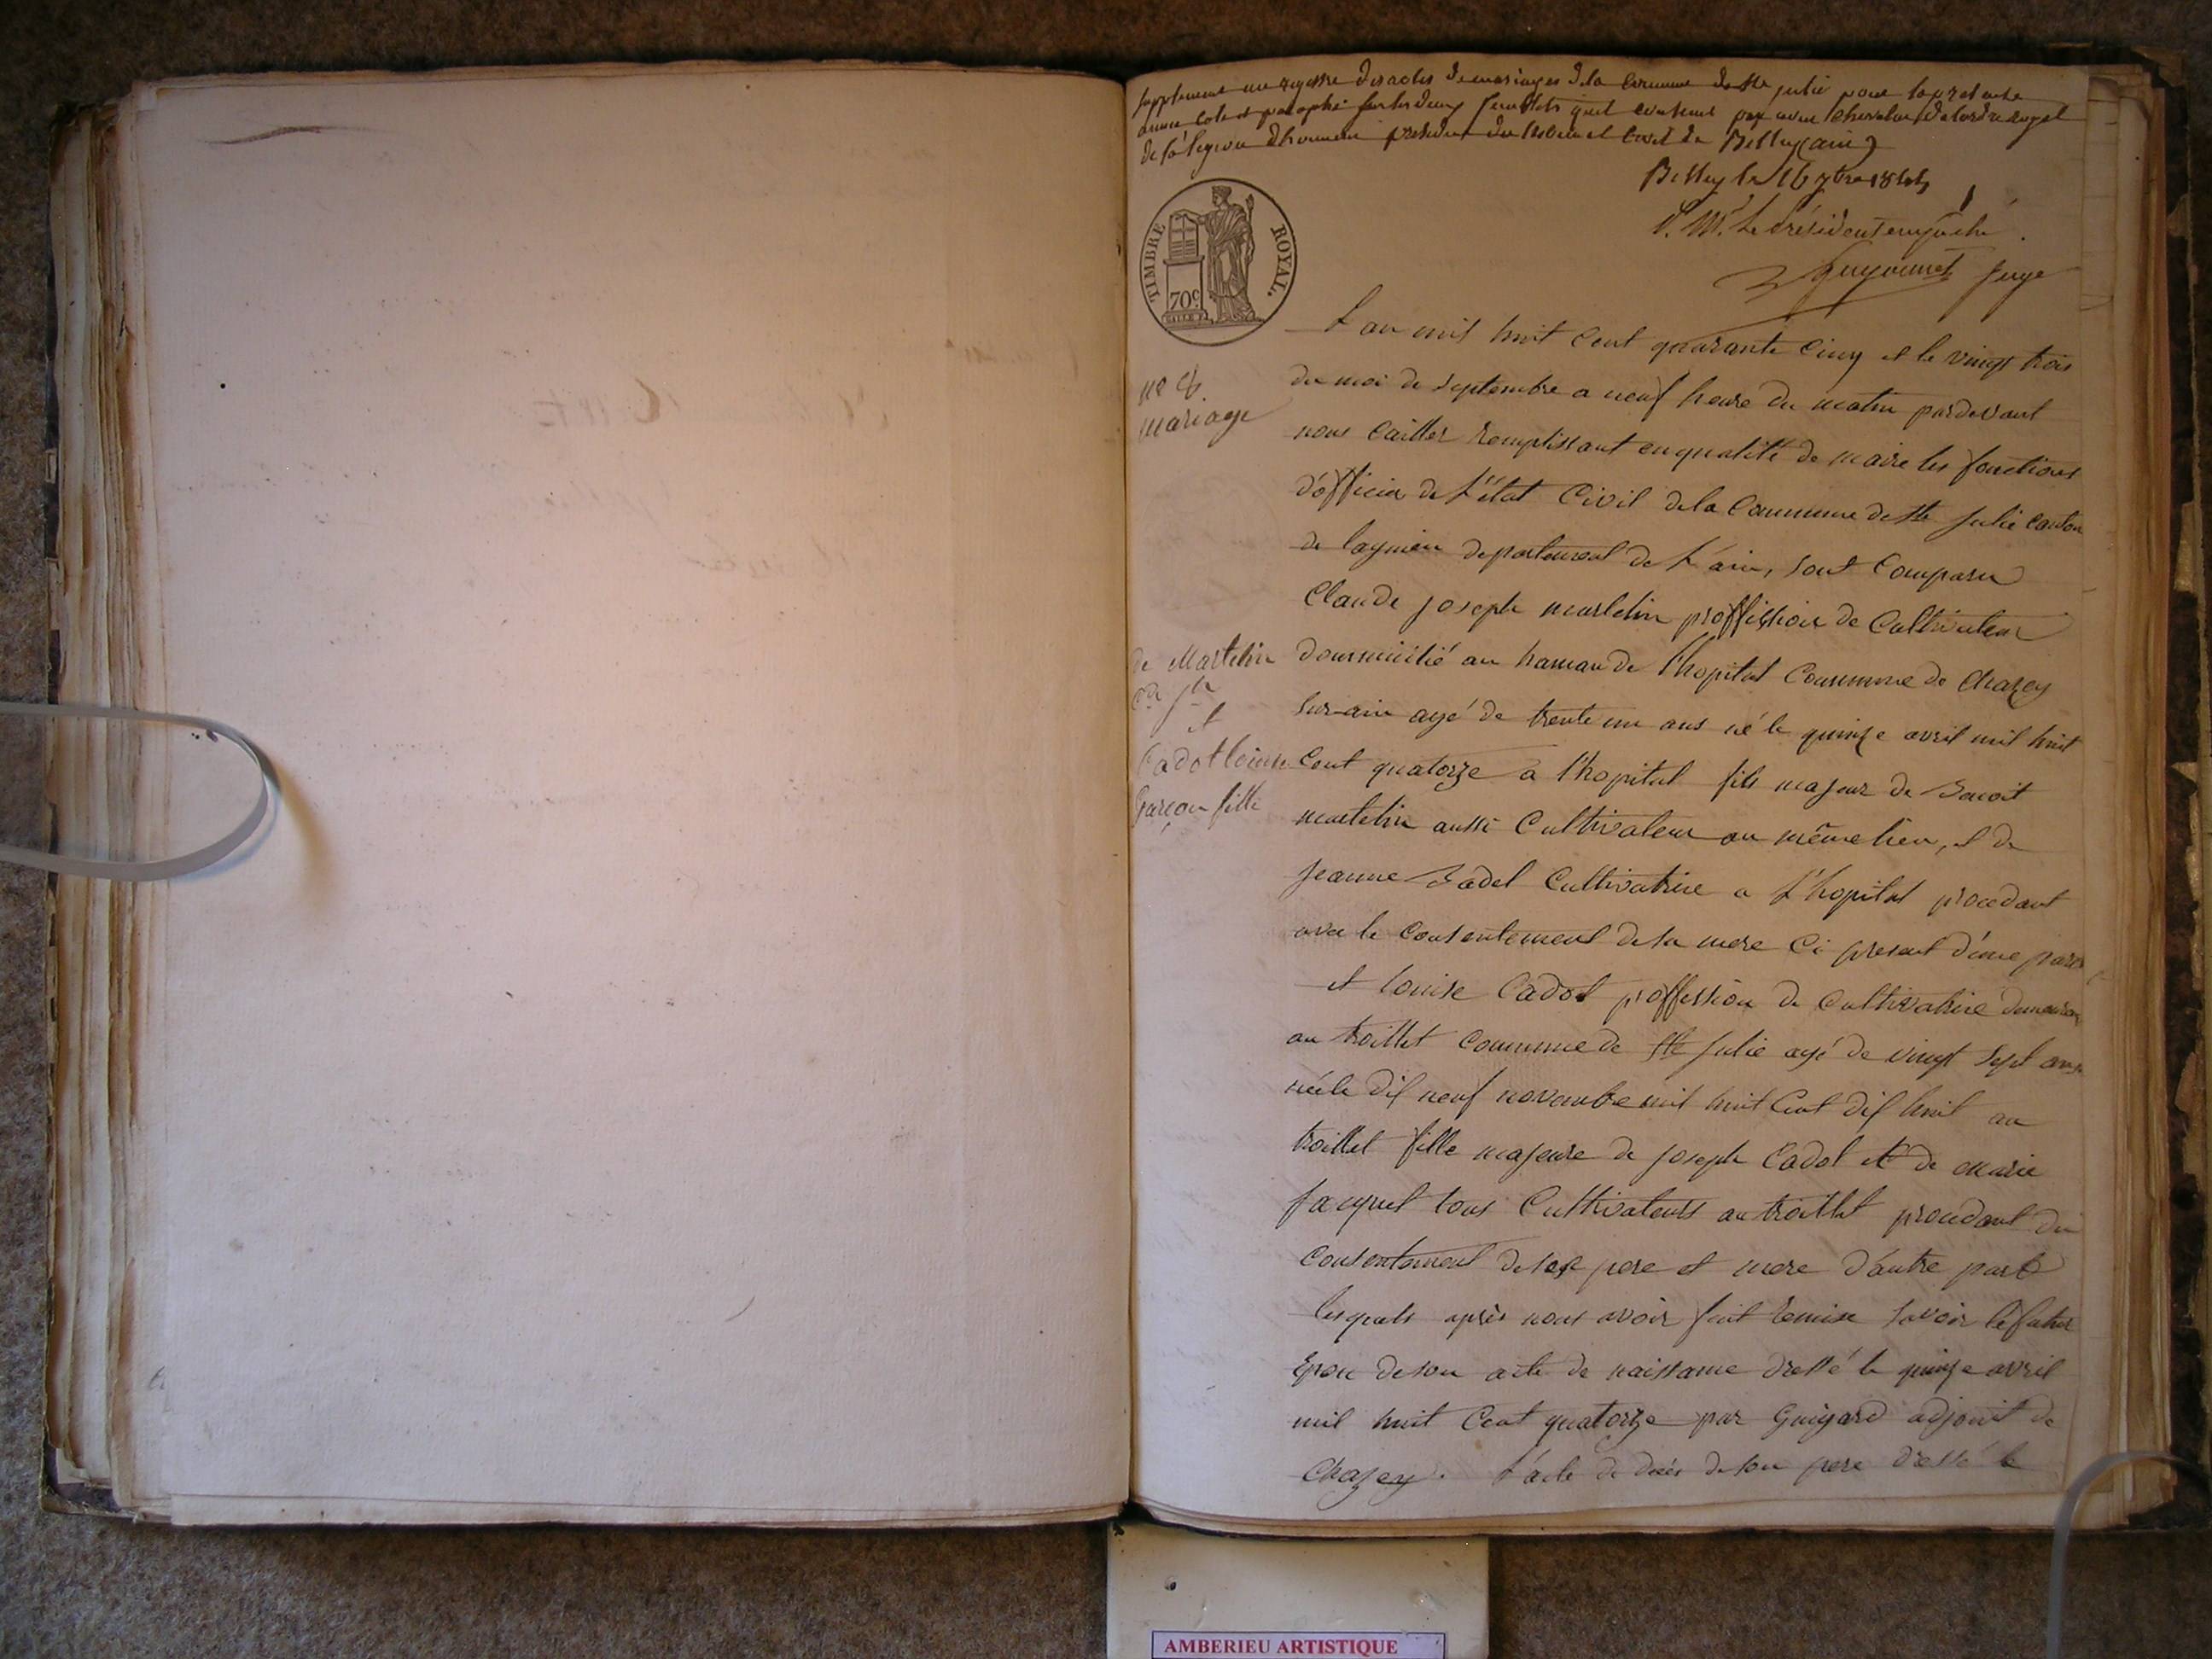 Supplement au registre des actes de mariages de la commune de Ste julie pour la presente
année coté et paraphé sur les deux feuillets qu'il contient par nous chevalier de l'ordre royal
de la légion d'honneur président du tribunal civil de Belley (ain)
Belley le 16 7bre 1845
P. Mr. le Président empêché.
juge
TIMBRE ROYAL.
70c
L'an mil huit cent quarante cinq et le vingt trois
no 8.
mariage
du moi de septembre a neuf heure du matin pardevant
nous cailler remplissant en qualité de maire les fonctions
d'officier de l'état Civil de la Commune de Ste Julie canton
de lagnieu departement de L'ain, sont Comparu
Claude joseph martelin proffission de Cultivateur
de Martelin
Cde jh
et
Cadot louise
Garçon fille
dommicilié au hamau de l'hopital Commune de Chazey
sur-ain agé de trente un ans né le quinze avril mil huit
Cent quatorze a l'hopital fils majeur de Benoit
martelin aussi Cultivateur au même lieu, et de
jeanne Badel Cultivatrice a L'hopital procedant
avec le consentement de sa mere Ci present d'une part
et louise Cadot proffession de Cultivatrice demeuran
au trollet Commune de Ste Julie agé de vingt sept ans
née le dix neuf novembre mil huit Cent dix huit au
trollet fille majeure de joseph Cadot et de marie
jacquet tous Cultivateurs au trollet procedant du
consentement de ses pere et mere d'autre part
lesquels après nous avoir fait remise savoir le futur
Epou de son acte de naissance dressé le quinze avril
mil huit Cent quatorze par Guigard adjoint de
Chazey. L'acte de decés de son pere dressé le
AMBERIEU ARTISTIQUE